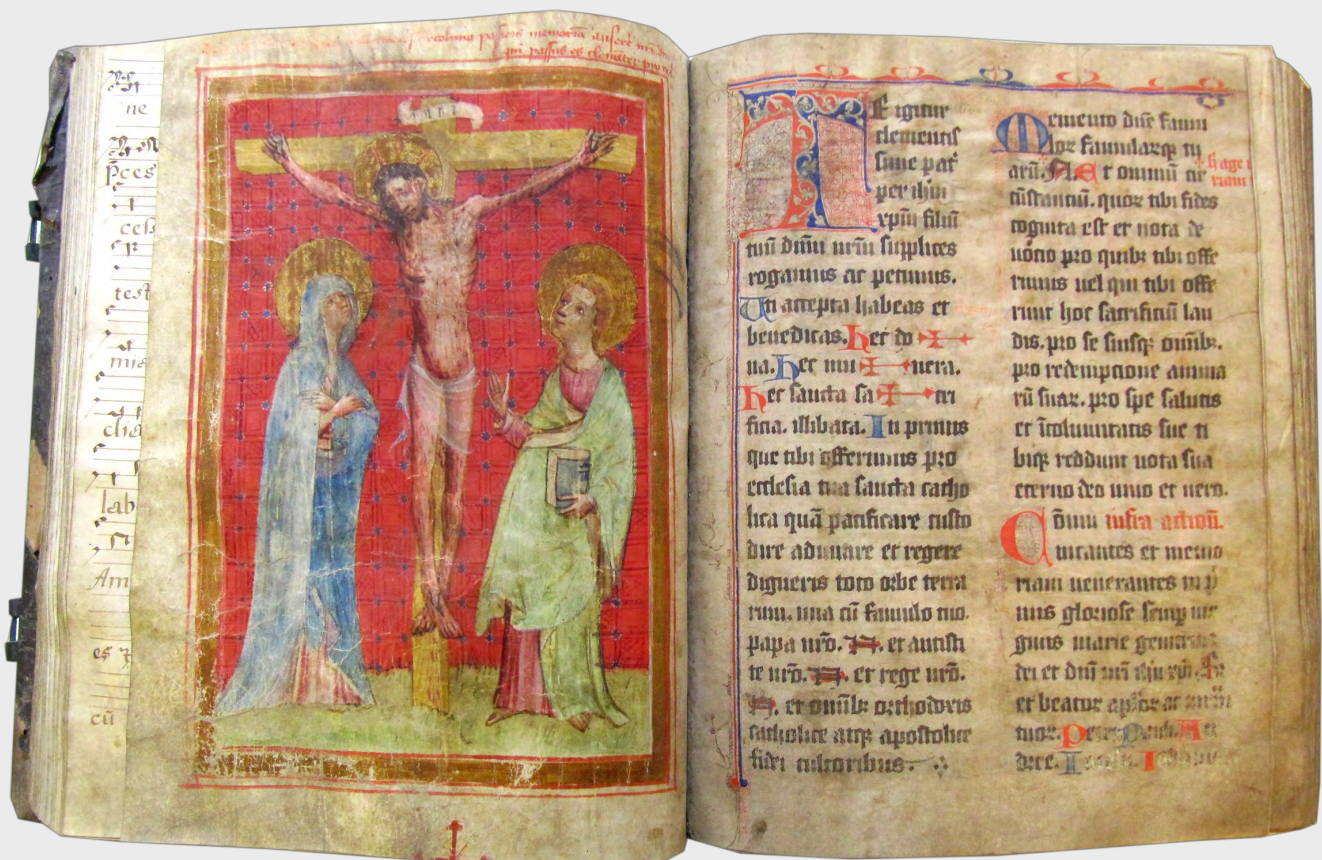 ne
p̄ces
cess
test
mis
lab
Am
es ⁊
cū
memoriā
passus es
INRI
TE igitur
clementiſ
ſime pat̄
per ihm̄
xp̄m filiū
tuū dūm nrm̄ ſupplices
rogamus ac petimus.
Uti accepta habeas et
benedicas. hec do ✠
na. hec mu ✠ nera.
hec sancta sa ✠ cri
ficia. illibata. In primis
que tibi offerimus pro
ecclesia tua sancta catho
lica quā pacificare cuſto
dire adunare et regere
digneris toto orbe terra
rum. una cū famulo tuo.
papa nr̄o. N. et antiſti
te nr̄o. N. et rege nr̄o.
N. et omīb; orthodoxis
catholice atq; apostolice
fidei cultoribus.
Memento dn̄e famu
lor famularq; tu
arū. N. Et omniū cir
cūstanciū. quor tibi fides
cognita est et nota de
uocio pro quib; tibi offe
rimus uel qui tibi offe
runt hoc sacrificiū lau
dis. pro se suisq; omīb;.
pro redempcione anima
rū suar. pro spe salutis
et īcolumitatis sue ti
biq; reddunt uota sua
eterno deo uiuo et uero.
Cōmu infra actioū.
nicantes et memo
riam uenerantes in p̄
mis gloriose semp uir
ginis marie genitricis
dei et dn̄i nr̄i ihu xp̄i
et beator apl̄or ac